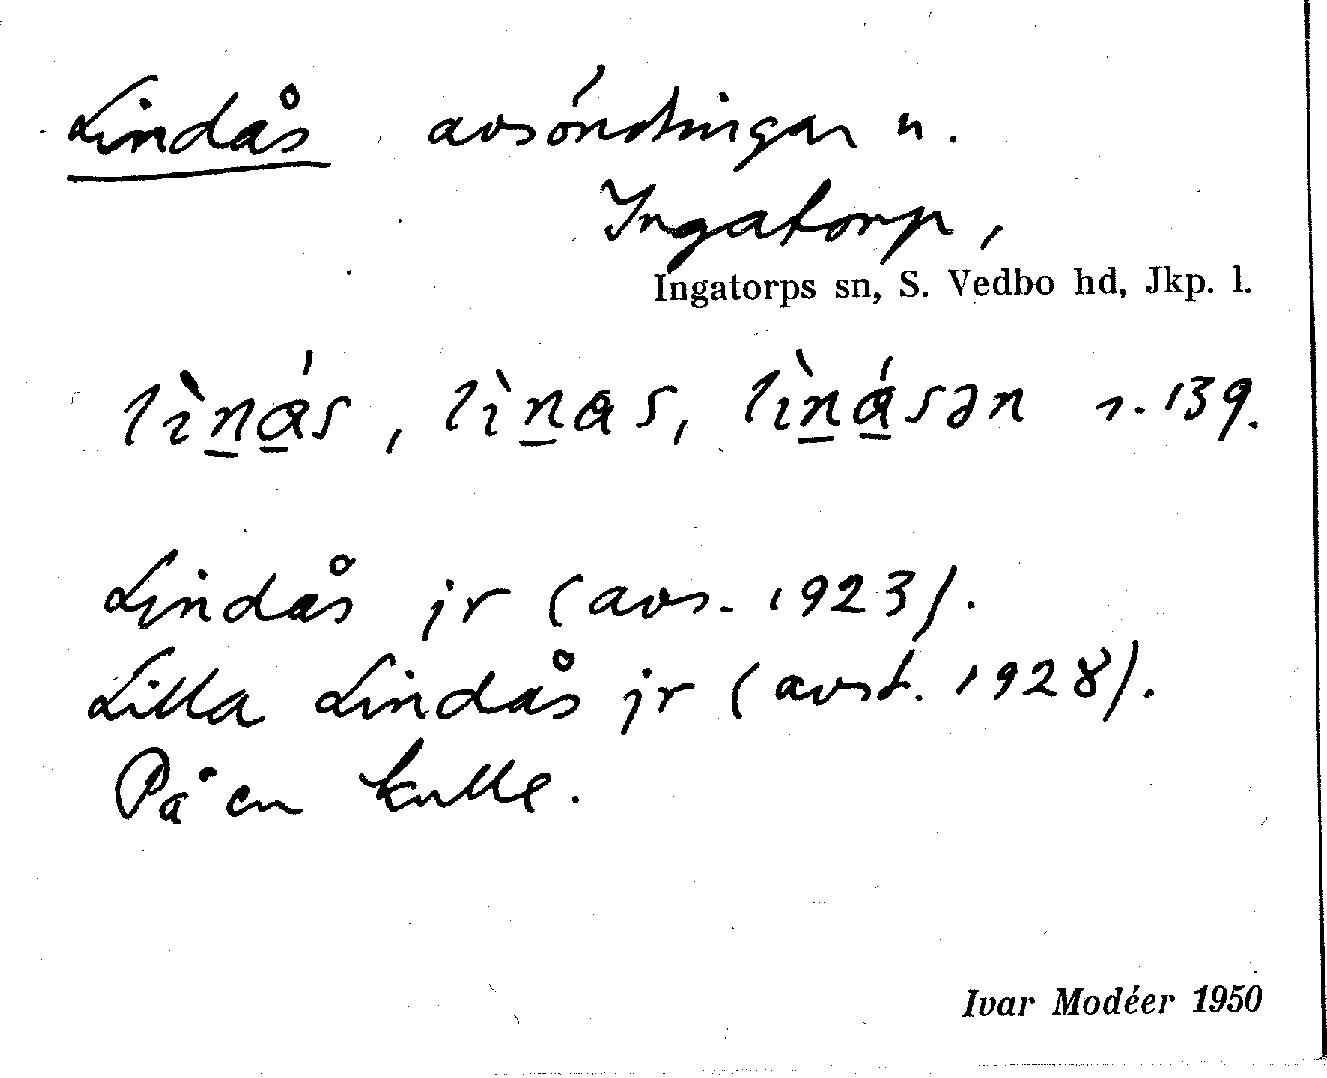 Lindås avsöndringar u.
Ingatorp,
Ingatorps sn, S. Vedbo hd, Jkp. l.
lìn̠á̠s, lìn̠as, lìn̠á̠sən s. 139.
Lindås jr (avs. 1923).
Lilla Lindås jr (avst. 1928).
På en kulle.
Ivar Modéer 1950